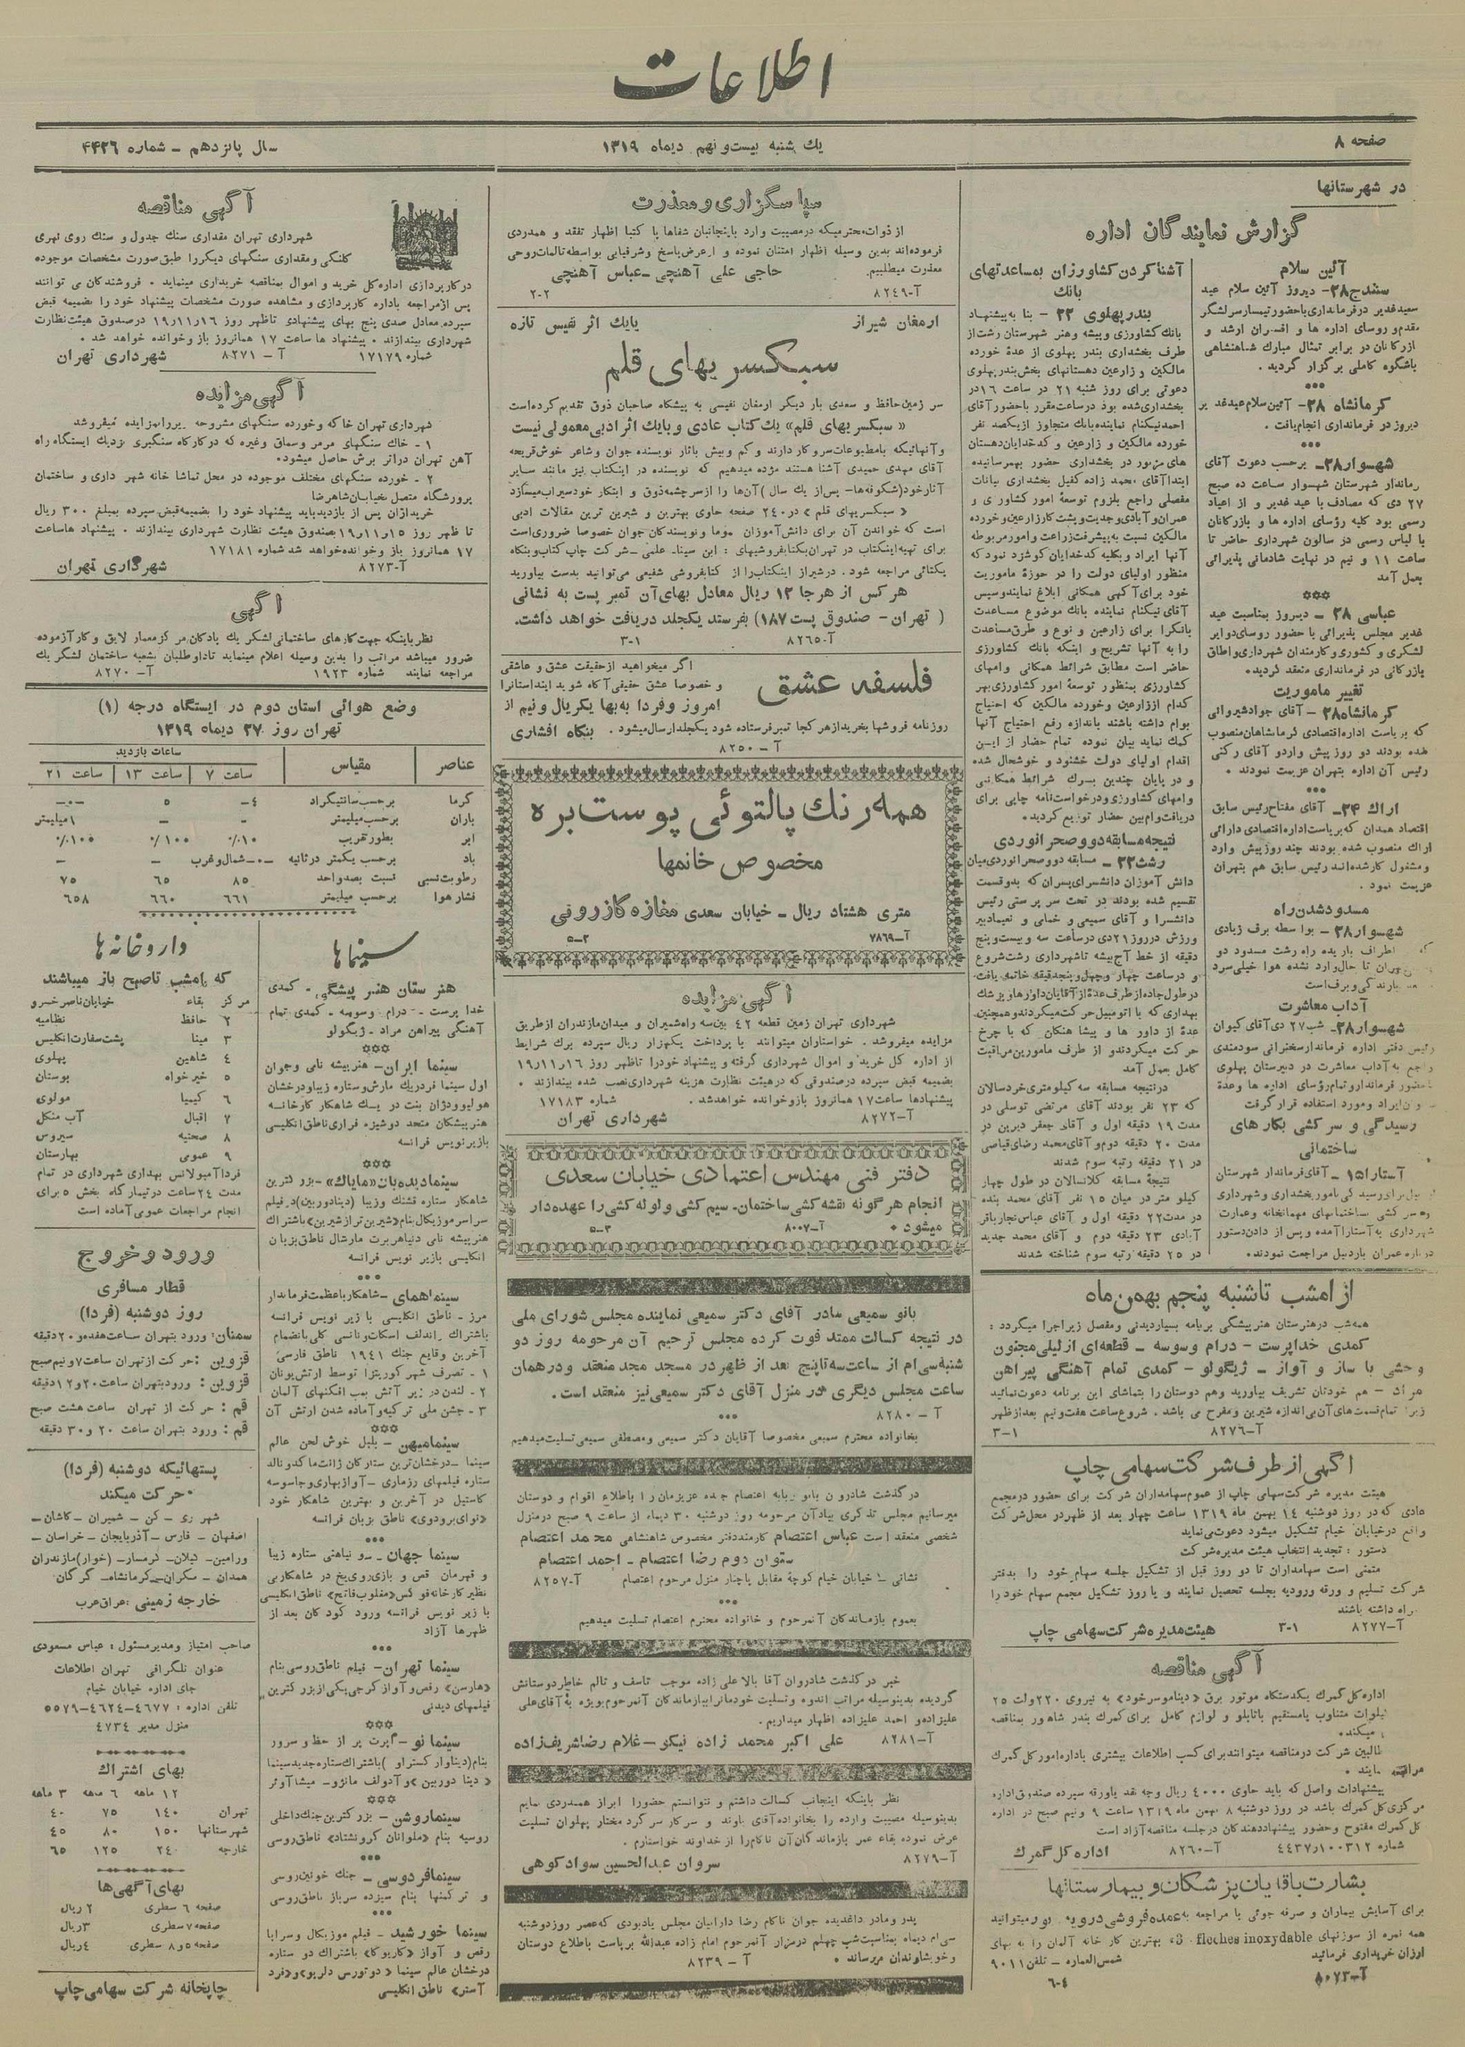 اطلاعات
صفحه ۸
یك شنبه بیست و نهم دیماه ۱۳۱۹
سال پانزدهم – شماره ۴۴۲۶
در شهرستانها
گزارش نمایندگان اداره
آئین سلام
سنندج ۲۸- دیروز آئین سلام عید
سعید غدیر در فرمانداری با حضور تیمسار سرلشگر
مقدم و روسای اداره ها و افسران ارشد و
بازرگانان در برابر تمثال مبارك شاهنشاهی
باشگوه کاملی برگزار گردید .
کرمانشاه ۲۸- آئین سلام عید غدیر
دیروز در فرمانداری انجام یافت .
شهسوار ۲۸- برحسب دعوت آقای
فرماندار شهرستان شهسوار ساعت ده صبح
۲۷ دی که مصادف با عید غدیر و از اعیاد
رسمی بود کلیه رؤسای اداره ها و بازرگانان
با لباس رسمی در سالون شهرداری حاضر تا
ساعت ۱۱ و نیم در نهایت شادمانی پذیرائی
بعمل آمد
عباسی ۲۸ – دیروز بمناسبت عید
غدیر مجلس پذیرائی با حضور روسای دوایر
لشگری و کشوری و کارمندان شهرداری و اطاق
بازرگانی در فرمانداری منعقد گردید
تغییر ماموریت
کرمانشاه ۲۸- آقای جواد شیروانی
که بریاست اداره اقتصادی کرماشاهان منصوب
شده بودند دو روز پیش وارد و آقای رکنی
رئیس آن اداره بتهران عزیمت نمودند .
اراك ۲۴- آقای مفتاح رئیس سابق
اقتصاد همدان که بریاست اداره اقتصادی دارائی
اراك منصوب شده بودند چند روز پیش وارد
و مشغول کار شده اند رئیس سابق هم بتهران
عزیمت نمود .
مسدود شدن راه
شهسوار ۲۸- بواسطه برف زیادی
که اطراف باریده راه رشت مسدود و
تهران تا حال وارد نشده هوا خیلی سرد
بارندگی و برف است
آداب معاشرت
شهسوار ۲۸- شب ۲۷ دی آقای کیوان
رئیس دفتر اداره فرماندار سخنرانی سودمندی
راجع به آداب معاشرت در دبیرستان پهلوی
با حضور فرماندار و تمام رؤسای اداره ها و عدۀ
ایراد و مورد استفاده قرار گرفت
رسیدگی و سرکشی بکارهای
ساختمانی
آستارا ۱۵ – آقای فرماندار شهرستان
برای رسیدگی بامور بخشداری و شهرداری
و سرکشی ساختمانهای مهمانخانه و عمارت
شهرداری به آستارا آمده و پس از دادن دستور
درباره عمران باردبیل مراجعت نمودند .
آشنا کردن کشاورزان بمساعدتهای
بانك
بندر پهلوی ۲۲ – بنا به پیشنهاد
بانك کشاورزی و پیشه و هنر شهرستان رشت از
طرف بخشداری بندر پهلوی از عدۀ خورده
مالکین و زارعین دهستانهای بخش بندر پهلوی
دعوتی برای روز شنبه ۲۱ در ساعت ۱۶ در
بخشداری شده بود در ساعت مقرر با حضور آقای
احمد نیکنام نماینده بانك متجاوز از یکصد نفر
خورده مالکین و زارعین و کدخدایان دهستان
های مزبور در بخشداری حضور بهمرسانیده
ابتدا آقای محمد زاده کفیل بخشداری بیانات
مفصلی راجع بلزوم توسعۀ امور کشاورزی و
عمران و آبادی و جدیت و پشت کار زارعین و خورده
مالکین نسبت به پیشرفت زراعت و امور مربوطه
آنها ایراد و بکلیه کدخدایان گوشزد نمود که
منظور اولیای دولت را در حوزۀ ماموریت
خود برای آگهی همگانی ابلاغ نمایند و سپس
آقای نیکنام نماینده بانك موضوع مساعدت
بانك را برای زارعین و نوع و طرق مساعدت
را به آنها تشریح و اینکه بانك کشاورزی
حاضر است مطابق شرائط همگانی وامهای
کشاورزی بمنظور توسعۀ امور کشاورزی بهر
کدام از زارعین و خورده مالکین که احتیاج
بوام داشته باشند باندازه رفع احتیاج آنها
کمك نماید بیان نموده تمام حضار از این
اقدام اولیای دولت خشنود و خوشحال شده
و در پایان چندین برك شرائط همگانی
وامهای کشاورزی و درخواستنامه چاپی برای
دریافت وام بین حضار توزیع کردید .
نتیجه مسابقه دو و صحرانوردی
رشت ۲۲ – مسابقه دو و صحرانوردی میان
دانش آموزان دانشسرای پسران که بدو قسمت
تقسیم شده بودند در تحت سرپرستی رئیس
دانشسرا و آقای سمیعی و خمامی و نعیما دبیر
ورزش در روز ۲۱ دی در ساعت سه و بیست و پنج
دقیقه از خط آج بیشه تا شهرداری رشت شروع
و در ساعت چهار و چهل و پنج دقیقه خاتمه یافت
در طول جاده از طرف عدۀ از آقایان داورها و پزشك
بهداری که با اتومبیل حرکت میکردند و همچنین
عدۀ از داور ها و پیشاهنگان که با چرخ
حرکت میکردند و از طرف مامورین مراقبت
کامل بعمل آمد
در نتیجه مسابقه سه کیلومتری خردسالان
که ۲۳ نفر بودند آقای مرتضی توسلی در
مدت ۱۹ دقیقه اول و آقای جعفر دبرین در
مدت ۲۰ دقیقه دوم و آقای محمد رضای قیاصی
در ۲۱ دقیقه رتبه سوم شدند
نتیجۀ مسابقه کلانسالان در طول چهار
کیلومتر در میان ۱۵ نفر آقای محمد بنده
در مدت ۲۲ دقیقه اول و آقای عباس نجار باقر
آبادی ۲۳ دقیقه دوم و آقای محمد جدید
در ۲۵ دقیقه رتبه سوم شناخته شدند
از امشب تا شنبه پنجم بهمن ماه
همه شب در هنرستان هنرپیشگی برنامه بسیار دیدنی و مفصل زیر اجرا میگردد :
کمدی خداپرست – درام وسوسه – قطعه ای از لیلی مجنون
وحشی با ساز و آواز – ژیگولو – کمدی تمام آهنگی پیراهن
مراد – هم خودتان تشریف بیاورید وهم دوستان را بتماشای این برنامه دعوت نمائید
زیرا تمام قسمت های آن بی اندازه شیرین و مفرح می باشد . شروع ساعت هفت و نیم بعد از ظهر
آ–۸۲۷۶ ۳-۱
آگهی از طرف شرکت سهامی چاپ
هیئت مدیره شرکت سهامی چاپ از عموم سهامداران شرکت برای حضور در مجمع
عادی که در روز دوشنبه ۱۴ بهمن ماه ۱۳۱۹ ساعت چهار بعد از ظهر در محل شرکت
واقع در خیابان خیام تشکیل میشود دعوت می نماید
دستور : تجدید انتخاب هیئت مدیره شرکت
متمنی است سهامداران تا دو روز قبل از تشکیل جلسه سهام خود را بدفتر
شرکت تسلیم و ورقه ورودیه بجلسه تحصیل نمایند و یا روز تشکیل مجمع سهام خود را
همراه داشته باشند
آ–۸۲۷۷ ۳-۱ هیئت مدیره شرکت سهامی چاپ
آگهی مناقصه
اداره کل گمرك یکدستگاه موتور برق «دینامو سرخود» به نیروی ۲۲۰ ولت ۲۵
کیلوات متناوب یا مستقیم با تابلو و لوازم کامل برای گمرك بندر شاهپور بمناقصه
میگذارد .
طالبین شرکت در مناقصه میتوانند برای کسب اطلاعات بیشتری باداره امور کل گمرك
مراجعه نمایند .
پیشنهادات واصل که باید حاوی ۴۰۰۰ ریال وجه نقد یا ورقه سپرده صندوق اداره
مرکزی کل گمرك باشد در روز دوشنبه ۸ بهمن ماه ۱۳۱۹ ساعت ۹ و نیم صبح در اداره
کل گمرك مفتوح و حضور پیشنهاد دهندگان در جلسه مناقصه آزاد است
شماره ۴۴۳۷ر۱۰۰۳۱۲ آ–۸۲۶۰ اداره کل گمرك
بشارت باقایان پزشکان و بیمارستانها
برای آسایش بیماران و صرفه جوئی با مراجعه به عمده فروشی درویه پور میتوانید
همه نمره از سوزنهای 3. fleches inoxydable بهترین کارخانه آلمان را به بهای
ارزان خریداری فرمائید شمس العماره – تلفن ۹۰۱۱
آ–۸۰۷۳ ۶-۴
سپاسگزاری و معذرت
از ذوات محترمیکه در مصیبت وارد باینجانبان شفاها یا کتبا اظهار تفقد و همدردی
فرموده اند بدین وسیله اظهار امتنان نموده و از عرض پاسخ و شرفیابی بواسطه تالمات روحی
معذرت میطلبیم . حاجی علی آهنچی – عباس آهنچی
آ–۸۲۴۹ ۲-۲
ارمغان شیراز یا یك اثر نفیس تازه
سبکسریهای قلم
سرزمین حافظ و سعدی بار دیگر ارمغان نفیسی به پیشگاه صاحبان ذوق تقدیم کرده است
« سبکسریهای قلم» یك کتاب عادی و یا یك اثر ادبی معمولی نیست
و آنهائیکه با مطبوعات سروکار دارند و کم و بیش باثار نویسنده جوان و شاعر خوش قریحه
آقای مهدی حمیدی آشنا هستند مژده میدهیم که نویسنده در اینکتاب نیز مانند سایر
آثار خود (شکوفه ها- پس از یك سال) آن ها را از سرچشمه ذوق و ابتکار خود سیراب میسازد
« سبکسریهای قلم » در ۲۴۰ صفحه حاوی بهترین و شیرین ترین مقالات ادبی
است که خواندن آن برای دانش آموزان عموما و نویسندگان جوان خصوصا ضروری است
برای تهیه اینکتاب در تهران بکتابفروشیهای : ابن سینا– علمی – شرکت چاپ کتاب و بنگاه
یکتائی مراجعه شود . در شیراز اینکتاب را از کتابفروشی شفیعی می توانید بدست بیاورید
هر کس از هر جا ۱۲ ریال معادل بهای آن تمبر پست به نشانی
( تهران – صندوق پست ۱۸۷) بفرستد یکجلد دریافت خواهد داشت.
آ–۸۲۶۵ ۳-۱
فلسفه عشق
اگر میخواهید از حقیقت عشق و عاشقی
و خصوصا عشق حقیقی آگاه شوید ایندستانرا
امروز و فردا به بها یکریال و نیم از
روزنامه فروشها بخرید از هر کجا تمبر فرستاده شود یکجلد ارسال میشود . بنگاه افشاری
آ – ۸۲۵۰
همه رنك پالتوئی پوست بره
مخصوص خانمها
متری هشتاد ریال – خیابان سعدی مغازه گازرونی
آ–۷۸۶۹ ۵-۳
آگهی مزایده
شهرداری تهران زمین قطعه ۴۲ بین سه راه شمیران و میدان مازندران از طریق
مزایده میفروشد . خواستاران میتوانند با پرداخت یکهزار ریال سپرده برك شرایط
از اداره کل خرید و اموال شهرداری گرفته و پیشنهاد خود را تا ظهر روز ۱۶ر۱۱ر۱۹
بضمیمه قبض سپرده در صندوقی که در هیئت نظارت هزینه شهرداری نصب شده بیندازند .
پیشنهادها ساعت ۱۷ همانروز باز و خوانده خواهد شد . شماره ۱۷۱۸۳
آ–۸۲۷۲ شهرداری تهران
دفتر فنی مهندس اعتمادی خیابان سعدی
انجام هر گونه نقشه کشی ساختمان – سیم کشی و لوله کشی را عهده دار
میشود • آ–۸۰۰۷ ۵-۳
بانو سمیعی مادر آقای دکتر سمیعی نماینده مجلس شورای ملی
در نتیجه کسالت ممتد فوت کرده مجلس ترحیم آن مرحومه روز دو
شنبه سی ام از ساعت سه تا پنج بعد از ظهر در مسجد مجد منعقد و در همان
ساعت مجلس دیگری در منزل آقای دکتر سمیعی نیز منعقد است .
آ – ۸۲۸۰
بخانواده محترم سمیعی مخصوصا آقایان دکتر سمیعی و مصطفی سمیعی تسلیت میدهیم
درگذشت شادروان بانو ربابه اعتصام جده عزیزمان را باطلاع اقوام و دوستان
میرسانیم مجلس تذکری بیاد آن مرحومه روز دوشنبه ۳۰ دیماه از ساعت ۹ صبح در منزل
شخصی منعقد است عباس اعتصام کارمند دفتر مخصوص شاهنشاهی محمد اعتصام
ستوان دوم رضا اعتصام – احمد اعتصام
نشانی – خیابان خیام کوچۀ مقابل پاچنار منزل مرحوم اعتصام آ–۸۲۵۷
بعموم بازماندگان آنمرحوم و خانواده محترم اعتصام تسلیت میدهیم
خبر درگذشت شادروان آقا بالا علی زاده موجب تاسف و تالم خاطر دوستانش
گردیده بدینوسیله مراتب اندوه و تسلیت خودمانرا ببازماندگان آنمرحوم بویژه به آقای علی
علیزاده و احمد علیزاده اظهار میداریم .
آ–۸۲۸۱ علی اکبر محمد زاده نیکو – غلام رضا شریف زاده
نظر باینکه اینجانب کسالت داشتم و نتوانستم حضورا ابراز همدردی نمایم
بدینوسیله مصیبت وارده را بخانواده آقای باوند و سرکار سرگرد مختار پهلوان تسلیت
عرض نموده بقاء عمر بازماندگان آن ناکام را از خداوند خواستارم .
آ–۸۲۷۹ سروان عبدالحسین سوادکوهی
پدر و مادر داغدیده جوان ناکام رضا دارابیان مجلس یادبودی که عصر روز دوشنبه
سی ام دیماه بمناسبت شب چهلم در مزار آنمرحوم امام زاده عبدالله برپاست باطلاع دوستان
و خویشاوندان میرساند • آ – ۸۲۳۹
آگهی مناقصه
شهرداری تهران مقداری سنك جدول و سنك روی نهری
کلنگی و مقداری سنگهای دیگر را طبق صورت مشخصات موجوده
در کارپردازی اداره کل خرید و اموال بمناقصه خریداری مینماید . فروشندگان می توانند
پس از مراجعه باداره کارپردازی و مشاهده صورت مشخصات پیشنهاد خود را بضمیمه قبض
سپرده معادل صدی پنج بهای پیشنهادی تا ظهر روز ۱۶ر۱۱ر۱۹ در صندوق هیئت نظارت
شهرداری بیندازند . پیشنهاد ها ساعت ۱۷ همانروز باز و خوانده خواهد شد .
شماره ۱۷۱۷۹ آ – ۸۲۷۱ شهرداری تهران
آگهی مزایده
شهرداری تهران خاکه و خورده سنگهای مشروحه زیر را بمزایده میفروشد
۱ – خاك سنگهای مرمر و سماق و غیره که در کارگاه سنگبری نزدیك ایستگاه راه
آهن تهران در اثر برش حاصل میشود .
۲ – خورده سنگهای مختلف موجوده در محل تماشا خانه شهرداری و ساختمان
پرورشگاه متصل بخیابان شاهرضا
خریداران پس از بازدید باید پیشنهاد خود را بضمیمه قبض سپرده بمبلغ ۳۰۰ ریال
تا ظهر روز ۱۵ر۱۱ر۱۹ بصندوق هیئت نظارت شهرداری بیندازند . پیشنهاد ها ساعت
۱۷ همانروز باز و خوانده خواهد شد شماره ۱۷۱۸۱
آ–۸۲۷۳ شهرداری تهران
آگهی
نظر باینکه جهت کارهای ساختمانی لشگر یك پادگان مرکز معمار لایق و کارآزموده
ضرور میباشد مراتب را بدین وسیله اعلام مینماید تا داوطلبان بشعبه ساختمان لشگر یك
مراجعه نمایند شماره ۱۹۲۳ آ– ۸۲۷۰
وضع هوائی استان دوم در ایستگاه درجه (۱)
تهران روز ۲۷ دیماه ۱۳۱۹
عناصر مقیاس ساعات بازدید
ساعت ۷ ساعت ۱۳ ساعت ۲۱
گرما برحسب سانتیگراد ۴– ۵ –۰–
باران برحسب میلیمتر – – ۱میلیمتر
ابر بطور تقریب ۱۰٪ ۱۰۰٪ ۱۰۰٪
باد برحسب یکمتر در ثانیه –۰– شمال و غرب – –
رطوبت نسبی نسبت بصد واحد ۸۵ ۶۵ ۷۵
فشار هوا برحسب میلیمتر ۶۶۱ ۶۶۰ ۶۵۸
سینماها
هنرستان هنرپیشگی – کمدی
خداپرست – درام وسوسه – کمدی تمام
آهنگی پیراهن مراد – ژیگولو
سینما ایران – هنرپیشه نامی و جوان
اول سینما فردریك مارش و ستاره زیبا و درخشان
هولیوود ژان بنت در یك شاهکار کارخانه
هنرپیشگان متحد دوشیزه فراری ناطق انگلیسی
بازیر نویس فرانسه
سینما دیده بان «مایاك» – بزرگترین
شاهکار ستاره قشنك و زیبا (دینادوربین) در فیلم
سراسر موزیکال بنام «شیرین تر از شیرین» باشتراك
هنرپیشه نامی دنیا هربرت مارشال ناطق بزبان
انگلیسی بازیر نویس فرانسه
سینما همای – شاهکار باعظمت فرماندار
مرز – ناطق انگلیسی با زیر نویس فرانسه
باشتراك راندلف اسکات و نانسی کلی بانضمام
آخرین وقایع جنك ۱۹۴۱ ناطق فارسی
۱ – تصرف شهر کوریتزا توسط ارتش یونان
۲ – لندن در زیر آتش بمب افکنهای آلمان
۳ – جشن ملی ترکیه و آماده شدن ارتش آن
سینما میهن – بلبل خوش لحن عالم
سینما – درخشان ترین ستارگان ژانت ماکدونالد
ستاره فیلمهای رزماری – آواز بهاری و جاسوسه
کاستیل در آخرین و بهترین شاهکار خود
«نوای برودوی» ناطق بزبان فرانسه
سینما جهان – سونیاهنی ستاره زیبا
و قهرمان رقص و بازی روی یخ در شاهکار بی
نظیر کارخانه فوکس «مغلوب فاتح» ناطق انگلیسی
با زیر نویس فرانسه ورود کودکان بعد از
ظهرها آزاد
سینما تهران – فیلم ناطق روسی بنام
«هارسن» رقص و آواز گرجی یکی از بزرگترین
فیلمهای دیدنی
سینما نو – اپرت پر از حظ و سرور
بنام (دیناوار کسترا و) باشتراك ستاره جدید سینما
« دینا دوربین» و آدولف مانژو – میشا آوئر
سینما روشن – بزرگترین جنك داخلی
روسیه بنام «ملوانان کرونشتاد» ناطق روسی
سینما فردوسی – جنك خونین روسی
و ترکمنها بنام سیزده سرباز ناطق روسی
سینما خورشید – فیلم موزیکال و سراپا
رقص و آواز «کاریوکا» باشتراك دو ستاره
درخشان عالم سینما «دولورس دلریو» و «فرد
آستر» ناطق انگلیسی
داروخانه ها
که امشب تا صبح باز میباشند
مرکز بقاء خیابان ناصرخسرو
۲ حافظ نظامیه
۳ مینا پشت سفارت انگلیس
۴ شاهین پهلوی
۵ خیرخواه بوستان
۶ کیمیا مولوی
۷ اقبال آب منگل
۸ صحتیه سیروس
۹ عمومی بهارستان
فردا آمبولانس بهداری شهرداری در تمام
مدت ۲۴ ساعت در تیمارگاه بخش ۵ برای
انجام مراجعات عمومی آماده است
ورود و خروج
قطار مسافری
روز دوشنبه (فردا)
سمنان: ورود بتهران ساعت هفده و ۲۰ دقیقه
قزوین : حرکت از تهران ساعت ۷ و نیم صبح
قزوین : ورود بتهران ساعت ۲۰ و ۱۲ دقیقه
قم : حرکت از تهران ساعت هشت صبح
قم : ورود بتهران ساعت ۲۰ و ۳۰ دقیقه
پستهائیکه دوشنبه (فردا)
حرکت میکند •
شهرری – کن – شمیران – کاشان –
اصفهان – فارس – آذربایجان – خراسان –
ورامین – گیلان – گرمسار – (خوار) مازندران
همدان – مکران – کرمانشاه – گرگان
خارجه زمینی : عراق عرب
صاحب امتیاز و مدیر مسئول : عباس مسعودی
عنوان تلگرافی تهران اطلاعات
جای اداره خیابان خیام
تلفن اداره : ۴۶۷۷–۴۶۲۴–۵۵۷۹
منزل مدیر ۴۷۳۴
بهای اشتراك
۱۲ ماهه ۶ ماهه ۳ ماهه
تهران ۱۴۰ ۷۵ ۴۰
شهرستانها ۱۵۰ ۸۰ ۴۵
خارجه ۲۴۰ ۱۲۵ ۶۵
بهای آگهی ها
صفحه ۶ سطری ۲ ریال
صفحه ۷ سطری ۳ ریال
صفحه ۵ و ۸ سطری ۴ ریال
چاپخانه شرکت سهامی چاپ